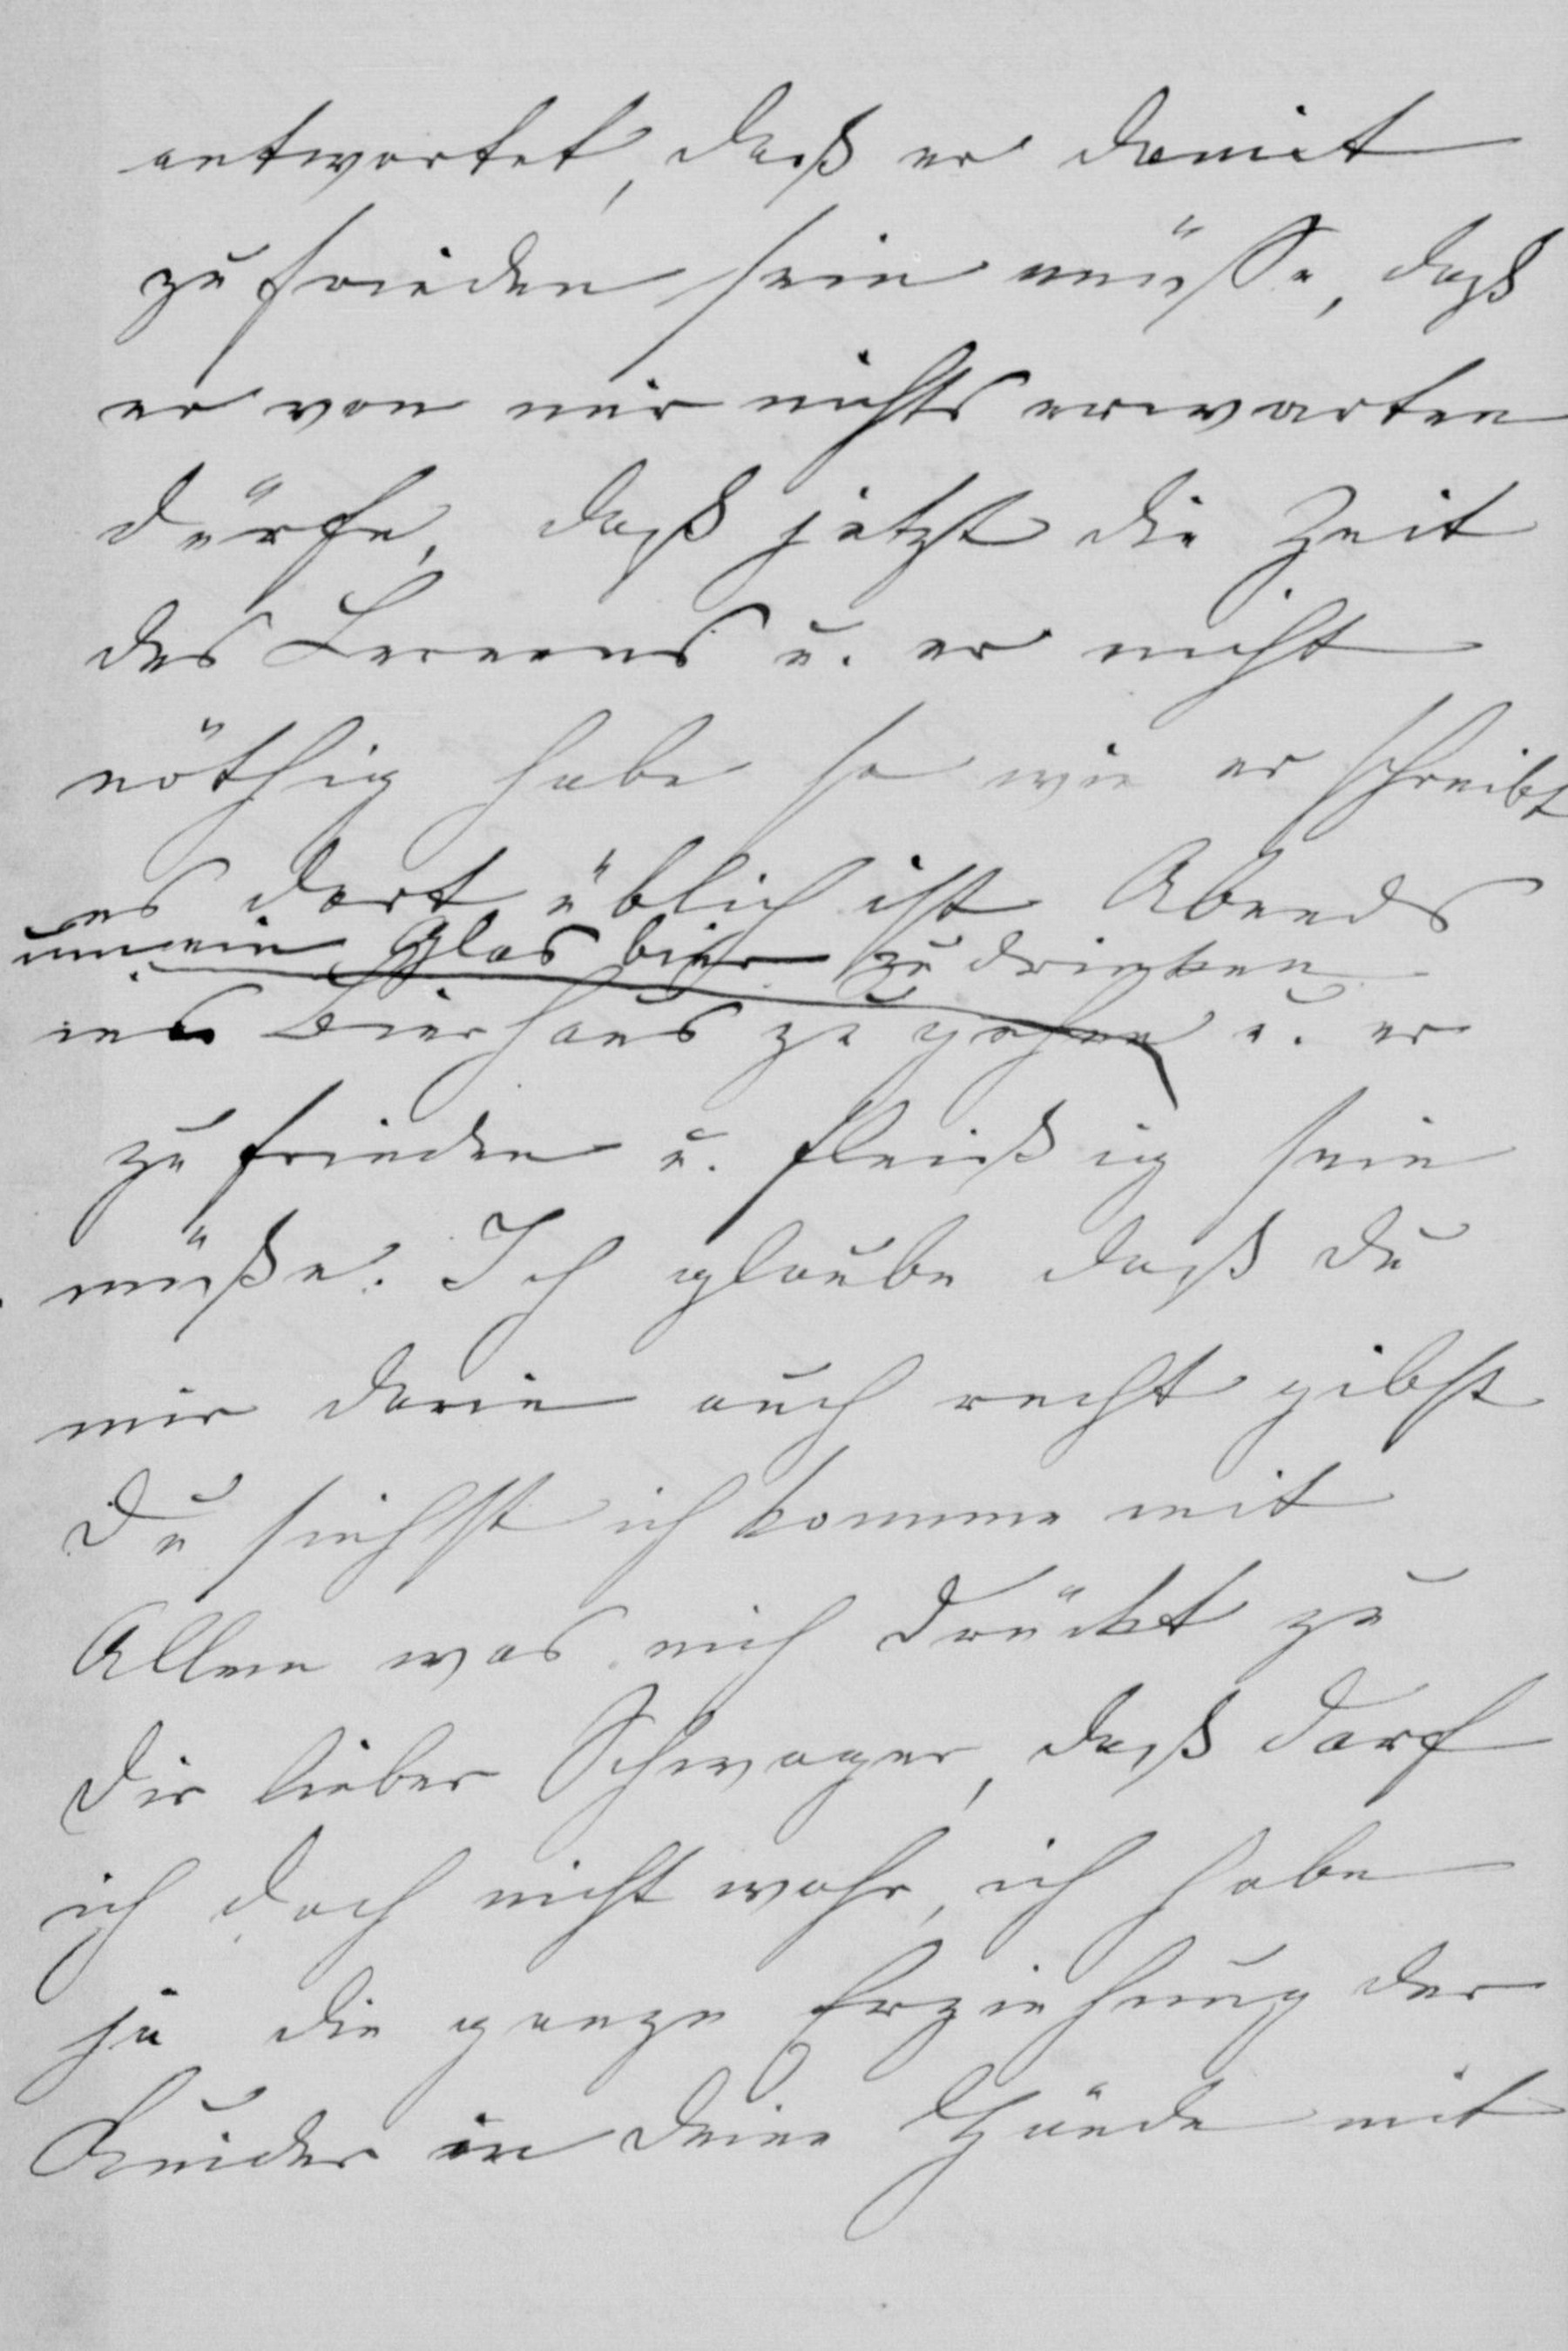 antwortet, daß er damit
zufrieden sein müsse, daß
er von mir nichts erwarten
dürfe, daß jetzt die Zeit
des Lernens u. er nicht
nöthig habe so wie er schreibt
es dort üblich ist Abends
um ein Glas bier zu drinken
ins Bierhaus zu gehen u. er
zufrieden u. fleißig sein
müße. Ich glaube daß du
mir darin auch recht gibst
Du siehst ich komme mit
Allem was mich drückt zu
Dir lieber Schwager, daß darf
ich doch nicht wahr, ich habe
ja die ganze Erziehung der
Kinder in deine Hände mit